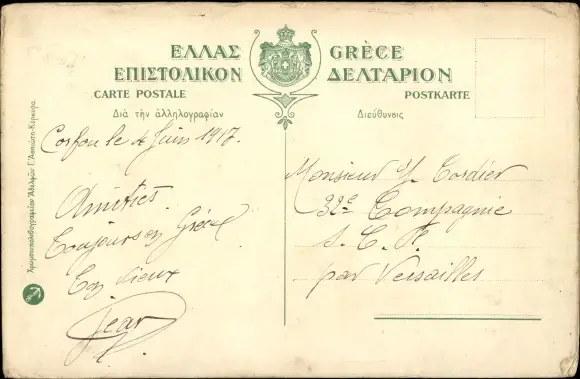 ΕΛΛΑΣ GRÈCE
ΕΠΙΣΤΟΛΙΚΟΝ ΔΕΛΤΑΡΙΟΝ
CARTE POSTALE POSTKARTE
Διὰ τὴν ἀλληλογραφίαν Διεύθυνσις
Corfou le 4 Juin 1917.
Amitiés.
Toujours en Grèce
Ton vieux
Jean
Monsieur Y. Cordier
32e Compagnie
S. C. F.
par Versailles
Χρωμοτυπολιθογραφεῖον Ἀδελφῶν Γ. Ἀσπιώτη-Κέρκυρα.